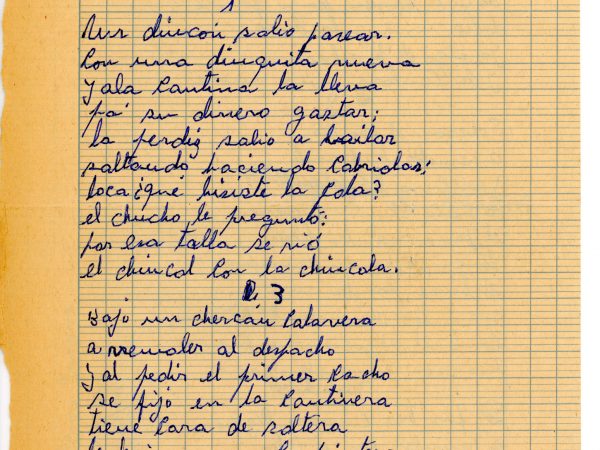 1
Un diucon salio pasear.
Con una diuquita nueva
y ala Cantina la lleva
pa' su dinero gaztar;
la perdiz salio a bailar
saltando haciendo Cabriolas;
loca ¿que hisiste la Cola?
el chucho le preguntó:
por esa talla se rió
el chincol Con la chincola.
3
Bajó un chercán Calavera
a rremoler al despacho
y al pedir el primer Cacho
se fijo en la Cantinera
tiene Cara de soltera